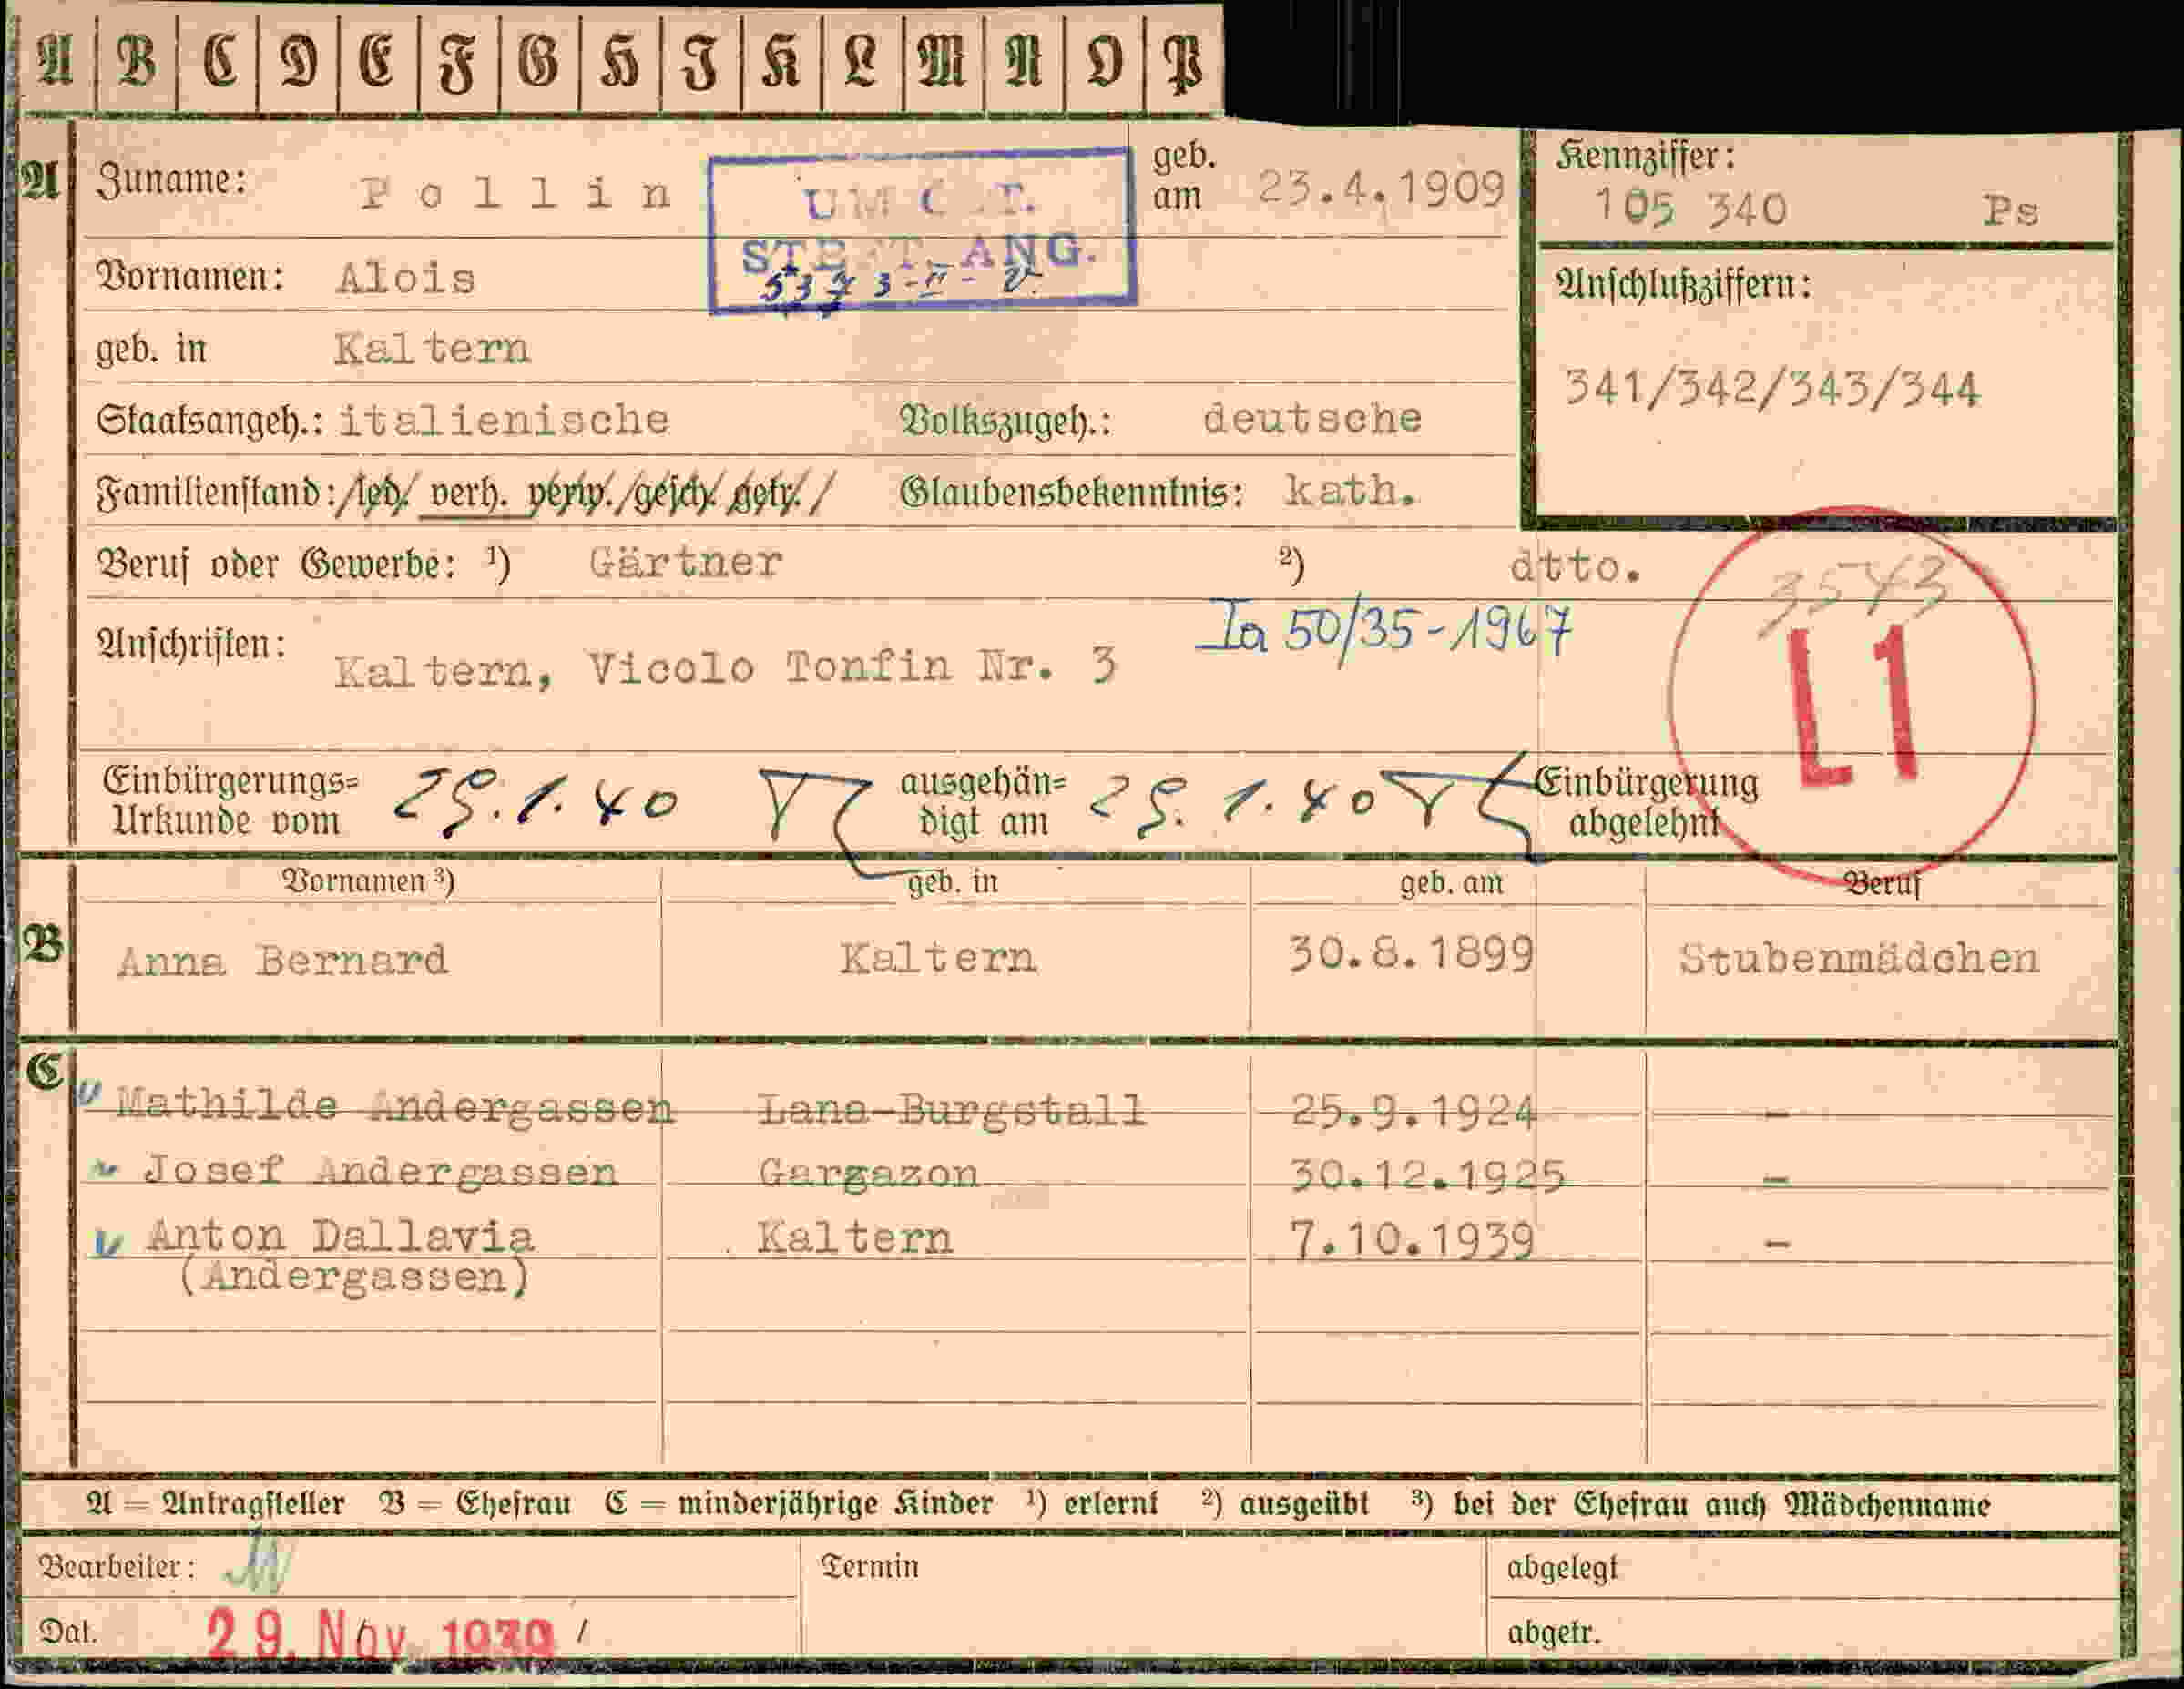 A B C D E F G H J K L M N O P
A Zuname: Pollin geb. am 23.4.1909 Kennziffer: 105 340 Ps
STE T. ANG.
Vornamen: Alois Anschlußziffern:
geb. in Kaltern 341/342/343/344
Staatsangeh.: italienische Volkszugeh.: deutsche
Familienstand: led. verh. verw. gesch. getr. Glaubensbekenntnis: kath.
Beruf oder Gewerbe: ¹) Gärtner ²) dtto. 3543
Ia 50/35-1967
Anschriften: Kaltern, Vicolo Tonfin Nr. 3 L1
Einbürgerungs= Urkunde vom 25.1.40 ausgehän= digt am 25.1.40 Einbürgerung abgelehnt
Vornamen ³) geb. in geb. am Beruf
B Anna Bernard Kaltern 30.8.1899 Stubenmädchen
C Mathilde Andergassen Lana-Burgstall 25.9.1924 -
Josef Andergassen Gargazon 30.12.1925 -
Anton Dallavia Kaltern 7.10.1939 -
(Andergassen)
A = Antragsteller B = Ehefrau C = minderjährige Kinder ¹) erlernt ²) ausgeübt ³) bei der Ehefrau auch Mädchenname
Bearbeiter: Termin abgelegt
Dat. 29. Nov. 1939 abgetr.